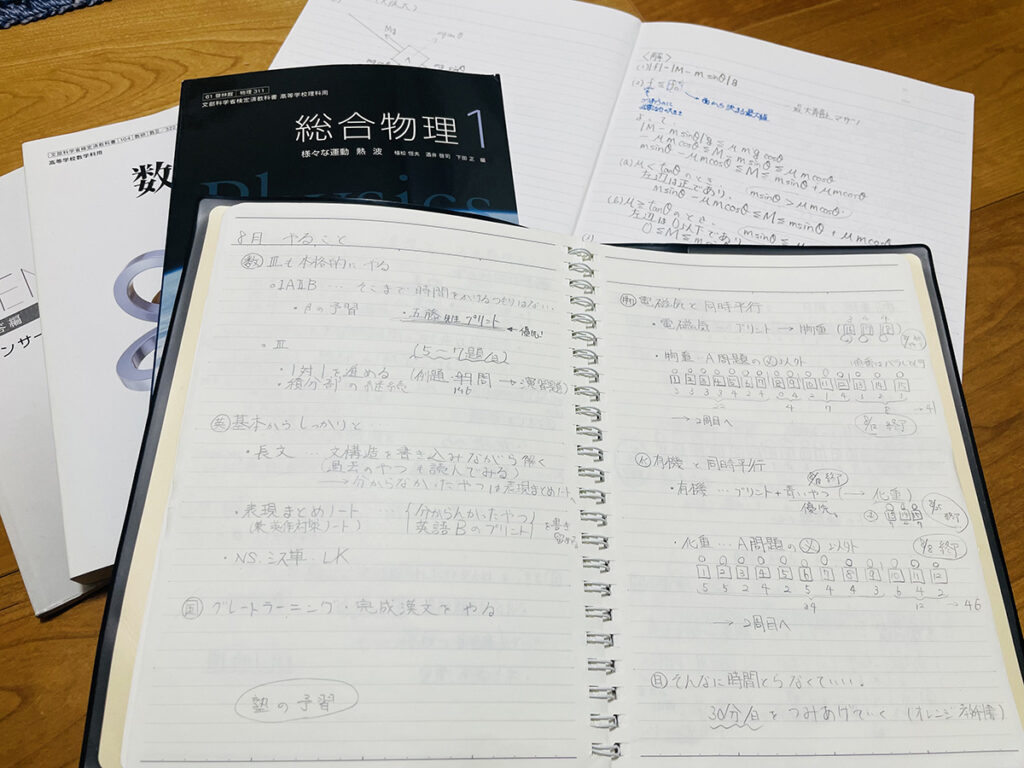 Mg
<解>
(1) |f| = |M - m sinθ|g
最大静止
よって
|M - m sinθ|g ≦ μ m g cosθ
- μ m cosθ ≦ M - m sinθ ≦ μ m cosθ
m sinθ - μ m cosθ ≦ M ≦ m sinθ + μ m cosθ
(a) μ < tanθ のとき
左辺は正であり、(m sinθ > μ m cosθ.)
m sinθ - μ m cosθ ≦ M ≦ m sinθ + μ m cosθ
(b) μ ≧ tanθ のとき
左辺は0以下であり
61 啓林館 物理 311
文部科学省検定済教科書 高等学校理科用
総合物理 1
様々な運動 熱 波 植松 恒夫 酒井 啓司 下田 正 編
Physics
文部科学省検定済教科書 104 数研
高等学校数学科用
数
8月 やること
数 Ⅲも本格的にやる
ⅠAⅡB … そこまで時間をかけるつもりはない.
・βの予習
プリント ← 優先!
Ⅲ (5〜7題/日)
・1対1を進める (例題 99問 → 演習題)
146
・積分部の継続
英 基本からしっかりと…
・長文 … 文構造を書き込みながら解く
過去のやつも読んでみる
→ 分からなかったやつは表現まとめノートへ
・表現まとめノート … 分からんかったやつ
英語Bのプリント を書き
・NS. シス単. LK
国 グレートラーニング・完成漢文をやる
塾の予習
物 電磁気と同時平行
・電磁気 … プリント → 物重
・物重…A問題の 以外
1 2 3 4 5 6 7 8 9 10 11 12 13 14 15
→ 41
→ 2周目へ
終了
化 有機と同時平行
・有機 … プリント + 青いやつ (→ 化重)
優先。
終了
・化重 … A問題の 以外
8/8 終了
1 2 3 4 5 6 7 8 9 10 11 12
5 5 2 4 2 5 4 4 3 6 4 2
12 → 46
→ 2周目へ
そんなに時間とらなくていい.
30分/日 をつみあげていく (オレンジ